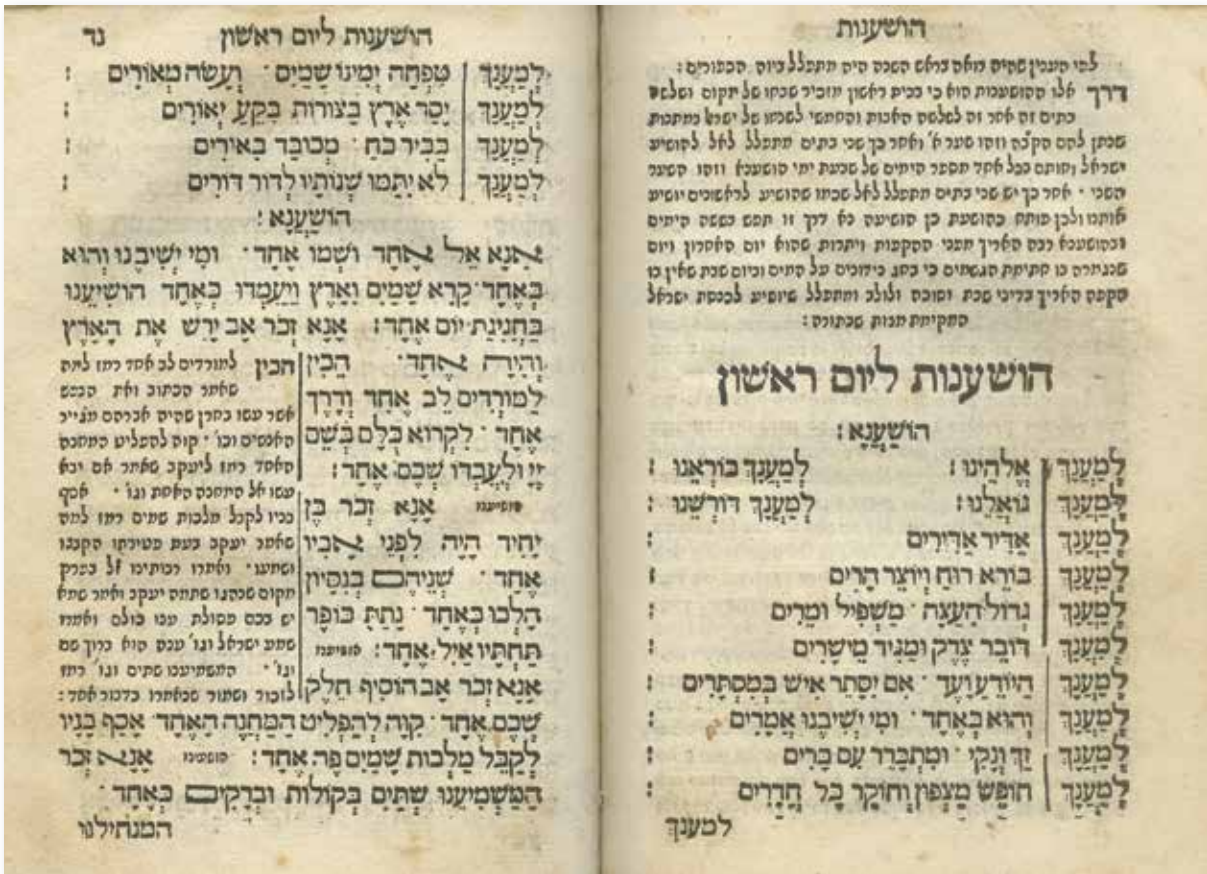 הושענות
לפי הענין שהיה רואה בראש השנה היה מתפלל ביום הכפורים :
דרך אלו ההושענות הוא כי בבית ראשון מזכיר שבחו של מקום ושלשה
בתים זה אחר זה לשלשה האבות והחמשי לשבחן של ישראל במתנות
שנתן להם הק״בה וזהו שער א' ואחר כך שני בתים מתפלל לאל להושיע
ישראל וחותם בכל אחד מספר הימים של שבעת ימי הושענא וזהו השער
השני · אחר כך יש שני בתים מתפלל לאל שכמו שהושיע לראשונים יושיע
אותנו ולכן פותח כהושעת כן הושיעה נא דרך זו תפש בששה הימים
ובהושענא רבה האריך מפני ההקפות ויתרות שהוא יום האחרון ויום
שנגמרה בו חתימת הגשמים כי בחג נידונים על המים וביום שבת שאין בו
הקפה האריך בדיני שבת וסוכה ולולב ומתפלל שיושיע לכנסת ישראל
המקיימת מצות שבתורה :
הושענות ליום ראשון
הוֹשַׁעֲנָא :
לְמַעֲנָךְ אֱלֹהֵינוּ : לְמַעֲנָךְ בּוֹרְאֵנוּ :
לְמַעֲנָךְ גּוֹאֲלֵנוּ : לְמַעֲנָךְ דּוֹרְשֵׁנוּ :
לְמַעֲנָךְ אַדִּיר אַדִּירִים
לְמַעֲנָךְ בּוֹרֵא רוּחַ וְיוֹצֵר הָרִים :
לְמַעֲנָךְ גְּדוֹל הָעֵצָה · מַשְׁפִּיל וּמֵרִים :
לְמַעֲנָךְ דּוֹבֵר צֶדֶק וּמַגִּיד מֵישָׁרִים
לְמַעֲנָךְ הַיּוֹדֵעַ וָעֵד · אִם יִסָּתֵר אִישׁ בְּמִסְתָּרִים :
לְמַעֲנָךְ וְהוּא בְאֶחָד · וּמִי יְשִׁיבֶנּוּ אֲמָרִים :
לְמַעֲנָךְ זַךְ וְנָקִי · וּמִתְבָּרֵר עִם בָּרִים :
לְמַעֲנָךְ חוֹפֵשׂ מַצְפּוּן וְחוֹקֵר כָּל חֲדָרִים :
למענך
הושענות ליום ראשון נד
לְמַעֲנָךְ טִפְּחָה יְמִינוֹ שָׁמַיִם · וְעָשָׂה מְאוֹרִים :
לְמַעֲנָךְ יָסַד אֶרֶץ בַּצּוּרוֹת בִּקַּע יְאוֹרִים :
לְמַעֲנָךְ כַּבִּיר כֹּחַ · מְכוּבָּד בָּאוּרִים :
לְמַעֲנָךְ לֹא יִתַּמּוּ שְׁנוֹתָיו לְדוֹר דּוֹרִים :
הוֹשַׁעֲנָא :
אָנָּא אֵל אֶחָד וּשְׁמוֹ אֶחָד · וּמִי יְשִׁיבֶנּוּ וְהוּא
בְאֶחָד · קָרָא שָׁמַיִם וָאָרֶץ וַיַּעַמְדוּ כְּאֶחָד הוֹשִׁיעֵנוּ
בַּחֲגִיגַת יוֹם אֶחָד : אָנָּא זְכֹר אָב יָרַשׁ אֶת הָאָרֶץ
וְהָיָה אֶחָד · הֵכִין
לַמּוֹרְדִים לֵב אֶחָד וְדֶרֶךְ
אֶחָד · לִקְרוֹא כֻלָּם בְּשֵׁם
יְיָ וּלְעָבְדוֹ שְׁכֶם אֶחָד :
הושיענו אָנָּא זְכֹר בֵּן
יָחִיד הָיָה לִפְנֵי אָבִיו
אֶחָד · שְׁנֵיהֶם בְּנִסָּיוֹן
הָלְכוּ כְּאֶחָד · נָתַתָּ כּוֹפֶר
תַּחְתָּיו אַיִל אֶחָד : הושיענו
אָנָּא זְכֹר אָב הוֹסִיף חֵלֶק
הכין למורדים לב אחד רמז למה
שאמר הכתוב ואת הנפש
אשר עשו בחרן שהיה אברהם מגייר
האנשים וכו' · קוה להפליט המחנה
האחד רמז ליעקב שאמר אם יבא
עשו אל המחנה האחת וגו' · אכף
בניו לקבל מלכות שמים רמז למה
שאמר יעקב בעת פטירתו הקבצו
ושמעו · ואמרו רבותינו זל בפרק
מקום שנהגו שתמה יעקב ואמר שמא
יש בכם פסולת ענו כולם ואמרו
שמע ישראל וגו' ענה הוא ברוך שם
וגו' · המשמיענו שתים וגו' רמז
לזכור ושמור שנאמרו בדבור אחד :
שְׁכֶם אֶחָד · קִוָּה לְהַפְלִיט הַמַּחֲנֶה הָאֶחָד · אָכַף בָּנָיו
לְקַבֵּל מַלְכוּת שָׁמַיִם פֶּה אֶחָד : הושיענו אָנָּא זְכֹר
הַמַּשְׁמִיעֵנוּ שְׁתַּיִם בְּקוֹלוֹת וּבְרָקִים כְּאֶחָד ·
המנחילנו